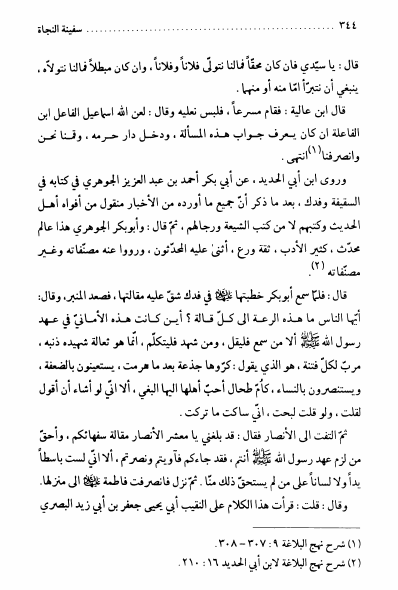 ٣٤٤ ........ سفينة النجاة
قال : يا سيّدي فان كان محقّاً فمالنا نتولّى فلاناً وفلاناً ، وان كان مبطلاً فمالنا نتولاّه ،
ينبغي أن نتبرّأ امّا منه أو منهما .
قال ابن عالية : فقام مسرعاً ، فلبس نعليه وقال : لعن الله اسماعيل الفاعل ابن
الفاعلة ان كان يعرف جواب هذه المسألة ، ودخل دار حرمه ، وقمنا نحن
وانصرفنا(١) انتهى .
وروى ابن أبي الحديد ، عن أبي بكر أحمد بن عبد العزيز الجوهري في كتابه في
السقيفة وفدك ، بعد ما ذكر أنّ جميع ما أورده من الأخبار منقول من أفواه أهل
الحديث وكتبهم لا من كتب الشيعة ورجالهم ، ثمّ قال : وأبوبكر الجوهري هذا عالم
محدّث ، كثير الأدب ، ثقة ورع ، أثنىٰ عليه المحدّثون ، ورووا عنه مصنّفاته وغير
مصنّفاته (٢).
قال : فلمّا سمع أبوبكر خطبتها في فدك شقّ عليه مقالتها ، فصعد المنبر، وقال:
أيّها الناس ما هذه الرعة الى كلّ قالة ؟ أين كانت هذه الأمانيّ في عهد
رسول الله ﷺ ألا من سمع فليقل ، ومن شهد فليتكلّم ، انّما هو ثعالة شهيده ذنبه ،
مربّ لكلّ فتنة ، هو الذي يقول : كرّوها جذعة بعد ما هرمت ، يستعينون بالضعفة ،
ويستنصرون بالنساء ، كأمّ طحال أحبّ أهلها اليها البغي ، ألا انّي لو أشاء أن أقول
لقلت ، ولو قلت لبحت ، انّي ساكت ما تركت .
ثمّ التفت الى الأنصار فقال : قد بلغني يا معشر الأنصار مقالة سفهائكم ، وأحقّ
من لزم عهد رسول الله ﷺ أنتم ، فقد جاءكم فآويتم ونصرتم ، ألا انّي لست باسطاً
يداً ولا لساناً على من لم يستحقّ ذلك منّا . ثمّ نزل فانصرفت فاطمة الى منزلها.
وقال : قلت : قرأت هذا الكلام على النقيب أبي يحيى جعفر بن أبي زيد البصري
(١) شرح نهج البلاغة ٩ : ٣٠٧ - ٣٠٨ .
(٢) شرح نهج البلاغة لابن أبي الحديد ١٦ : ٢١٠ .